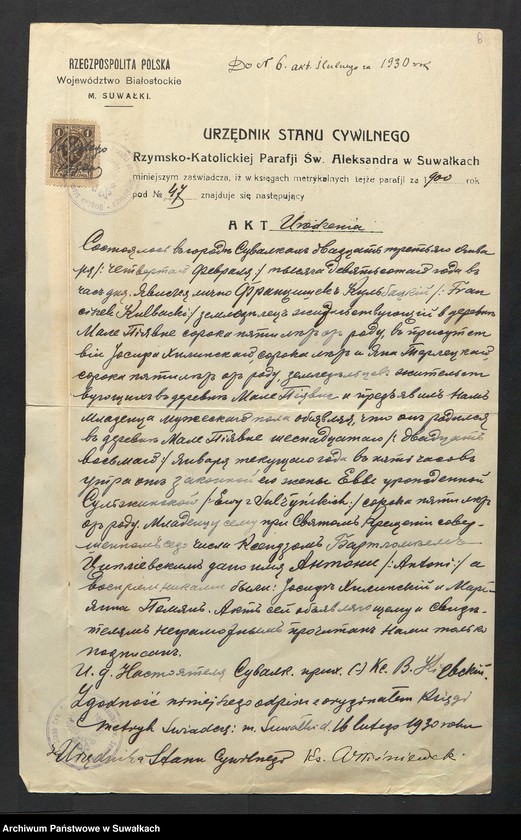 6
Do № 6. akt. ślubnego za 1930 rok
RZECZPOSPOLITA POLSKA
Województwo Białostockie
M. SUWAŁKI.
URZĘDNIK STANU CYWILNEGO
Rzymsko-Katolickiej Parafji Św. Aleksandra w Suwałkach
niniejszym zaświadcza, iż w księgach metrykalnych tejże parafji za 1900 rok
pod № 47 znajduje się następujący
AKT Urodzenia
Состоялось въ городѣ Сувалкахъ двадцать третьяго Янва
ря /: четвертаго Февраля :/ тысяча девятьсотаго года въ
часъ дня. Явился лично Францишекъ Кульбацкій /: Fran
ciszek Kulbacki :/ земледѣлецъ жительствующій въ деревнѣ
Мале Піявне сорока пяти лѣтъ отъ роду, въ присутст
віи Іосифа Хилинскаго сорока лѣтъ и Яна Тарлецкаго
сорока пяти лѣтъ отъ роду, земледѣльцевъ жительств
вующихъ въ деревнѣ Мале Піявне и предъявилъ Намъ
младенца мужескаго пола объявляя, что онъ родился
въ деревнѣ Мале Піявне шеснадцатаго /: двадцать
восьмаго :/ Января текущаго года въ пять часовъ
утра отъ законной его жены Евы урожденной
Сульжинской /: Ewy z Sulżyńskich :/ сорока пяти лѣтъ
отъ роду. Младенцу сему при Святомъ Крещеніи совер-
шенномъ сего числа Ксендзомъ Бартломеемъ
дано имя Антони /: Antoni :/ а
воспріемниками были: Іосифъ Хилинскій и Марі-
янна Помянъ. Актъ сей объявляющему и Свидѣ-
телямъ неграмотнымъ прочитанъ Нами только
подписанъ.
И. д. Настоятеля Сувалк. прих. (-) Кс. В.
Zgodność niniejszego odpisu z oryginałem Księgi
metryk świadczę: m. Suwałki d. 16 lutego 1930 roku
Urzędnik Stanu Cywilnego Ks.
Archiwum Państwowe w Suwałkach